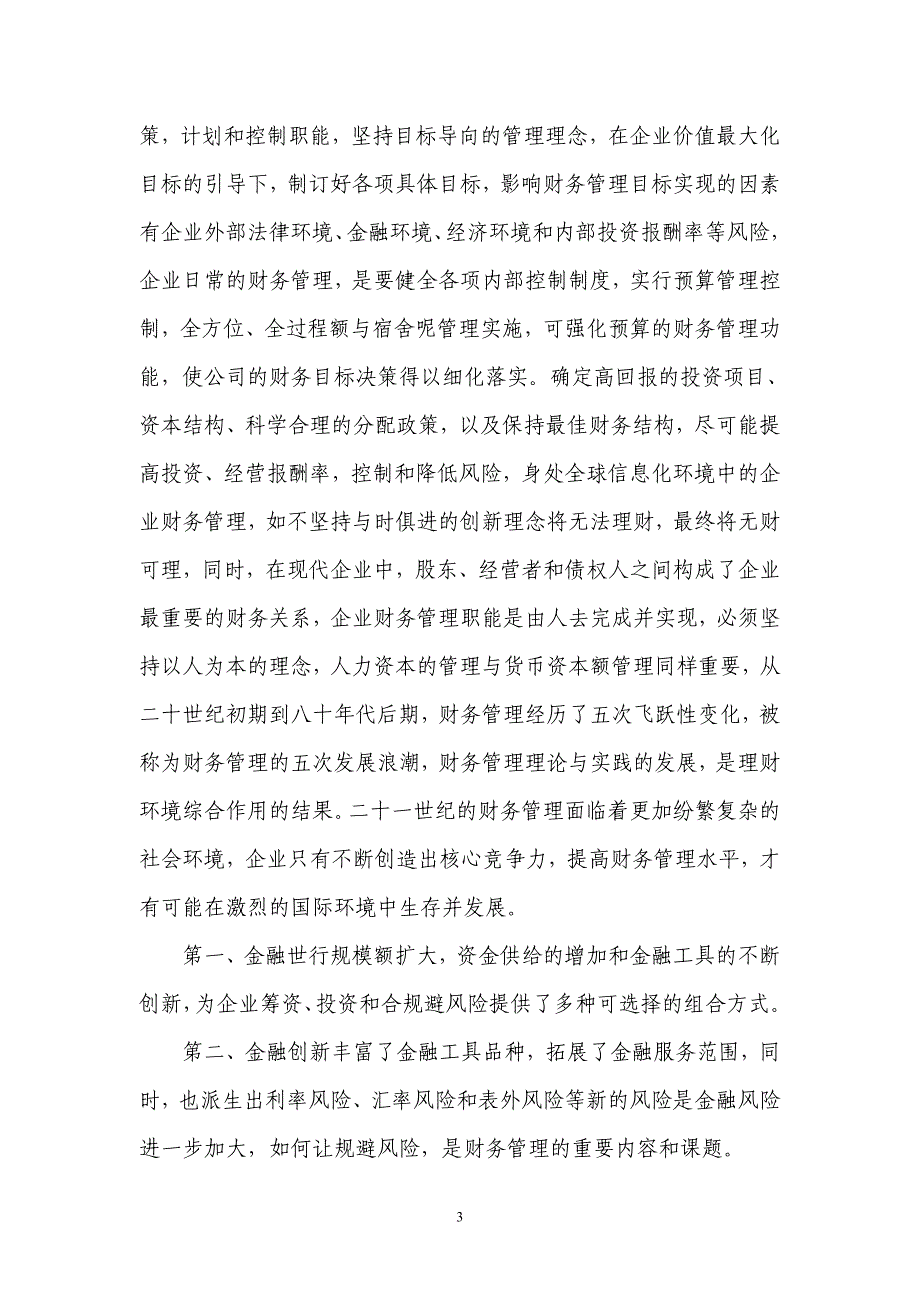 策，计划和控制职能，坚持目标导向的管理理念，在企业价值最大化
目标的引导下，制订好各项具体目标，影响财务管理目标实现的因素
有企业外部法律环境、金融环境、经济环境和内部投资报酬率等风险，
企业日常的财务管理，是要健全各项内部控制制度，实行预算管理控
制，全方位、全过程额与宿舍呢管理实施，可强化预算的财务管理功
能，使公司的财务目标决策得以细化落实。确定高回报的投资项目、
资本结构、科学合理的分配政策，以及保持最佳财务结构，尽可能提
高投资、经营报酬率，控制和降低风险，身处全球信息化环境中的企
业财务管理，如不坚持与时俱进的创新理念将无法理财，最终将无财
可理，同时，在现代企业中，股东、经营者和债权人之间构成了企业
最重要的财务关系，企业财务管理职能是由人去完成并实现，必须坚
持以人为本的理念，人力资本的管理与货币资本额管理同样重要，从
二十世纪初期到八十年代后期，财务管理经历了五次飞跃性变化，被
称为财务管理的五次发展浪潮，财务管理理论与实践的发展，是理财
环境综合作用的结果。二十一世纪的财务管理面临着更加纷繁复杂的
社会环境，企业只有不断创造出核心竞争力，提高财务管理水平，才
有可能在激烈的国际环境中生存并发展。
第一、金融世行规模额扩大，资金供给的增加和金融工具的不断
创新，为企业筹资、投资和合规避风险提供了多种可选择的组合方式。
第二、金融创新丰富了金融工具品种，拓展了金融服务范围，同
时，也派生出利率风险、汇率风险和表外风险等新的风险是金融风险
进一步加大，如何让规避风险，是财务管理的重要内容和课题。
3